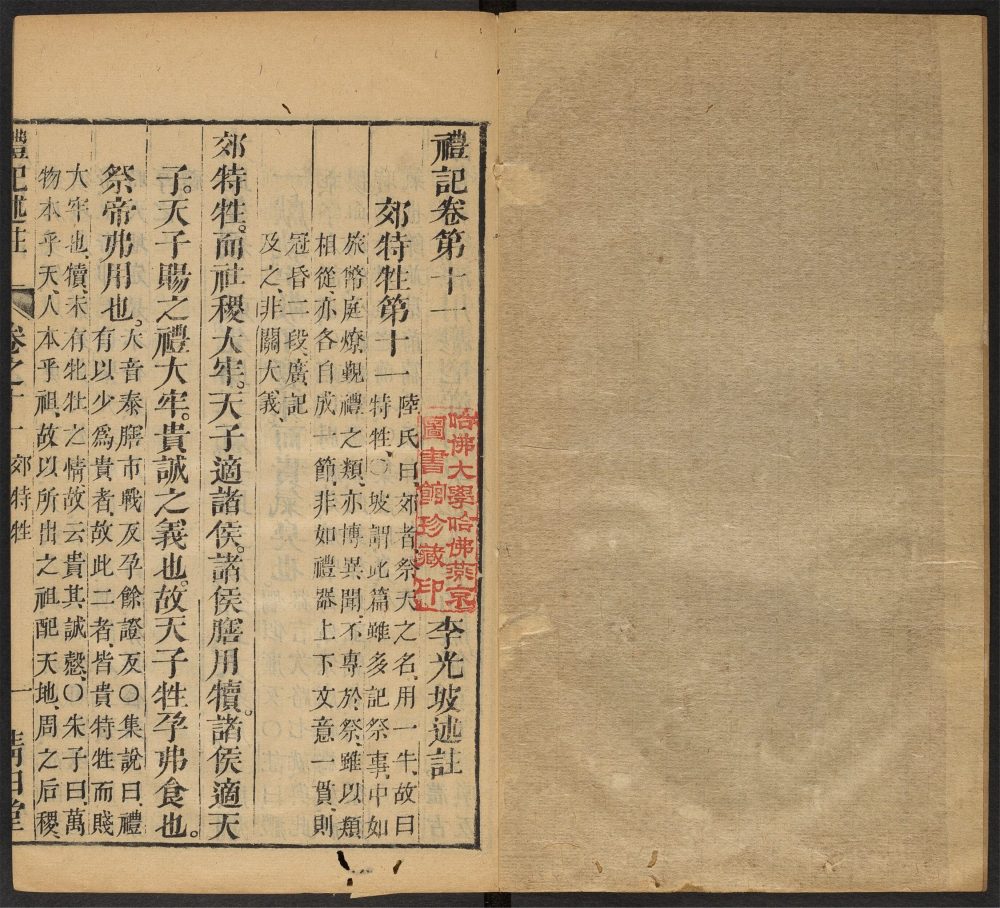 禮記卷第十一
李光坡述註
哈佛大學哈佛燕京
圖書館珍藏印
郊特牲第十一 陸氏曰、郊者、祭天之名、用一牛、故曰
特牲、○坡謂此篇雖多記祭事、中如
旅幣庭燎覲禮之類、亦博異聞、不專於祭、雖以類
相從、亦各自成一節、非如禮器上下文意一貫、則
冠昏二段、廣記
及之、非關大義、
郊特牲。而社稷大牢。天子適諸侯。諸侯膳用犢。諸侯適天
子。天子賜之禮大牢。貴誠之義也。故天子牲孕弗食也。
祭帝弗用也。 大音泰膳市戰反孕餘證反○集說曰、禮
有以少爲貴者、故此二者、皆貴特牲而賤
大牢也、犢、未有牝牡之情、故云貴其誠慤、○朱子曰、萬
物本乎天、人本乎祖、故以所出之祖配天地、周之后稷、
禮記述註 卷之十一 郊特牲 一 清白堂